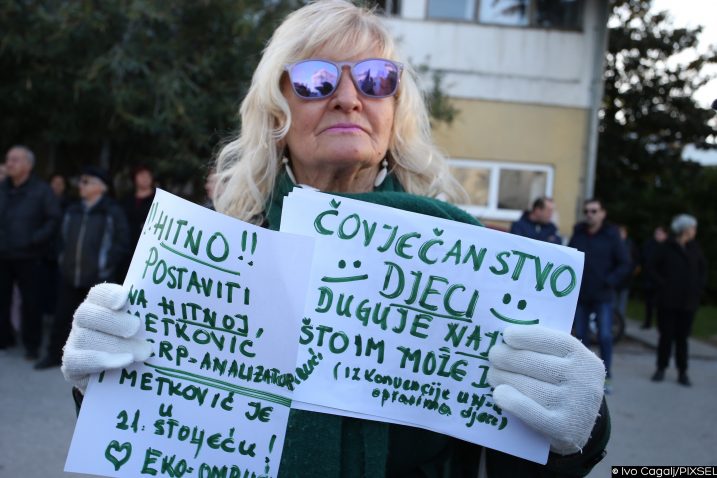 !!HITNO!!
POSTAVITI
NA HITNOJ,
METKOVIĆ
CRP-ANALIZATOR
! METKOVIĆ JE
U
21. STOLJEĆU!
EKO-
ČOVJEČANSTVO
DJECI
DUGUJE
ŠTO IM MOŽE
(IZ Konvencije
o pravima djece)
© Ivo Cagalj/PIXSEL